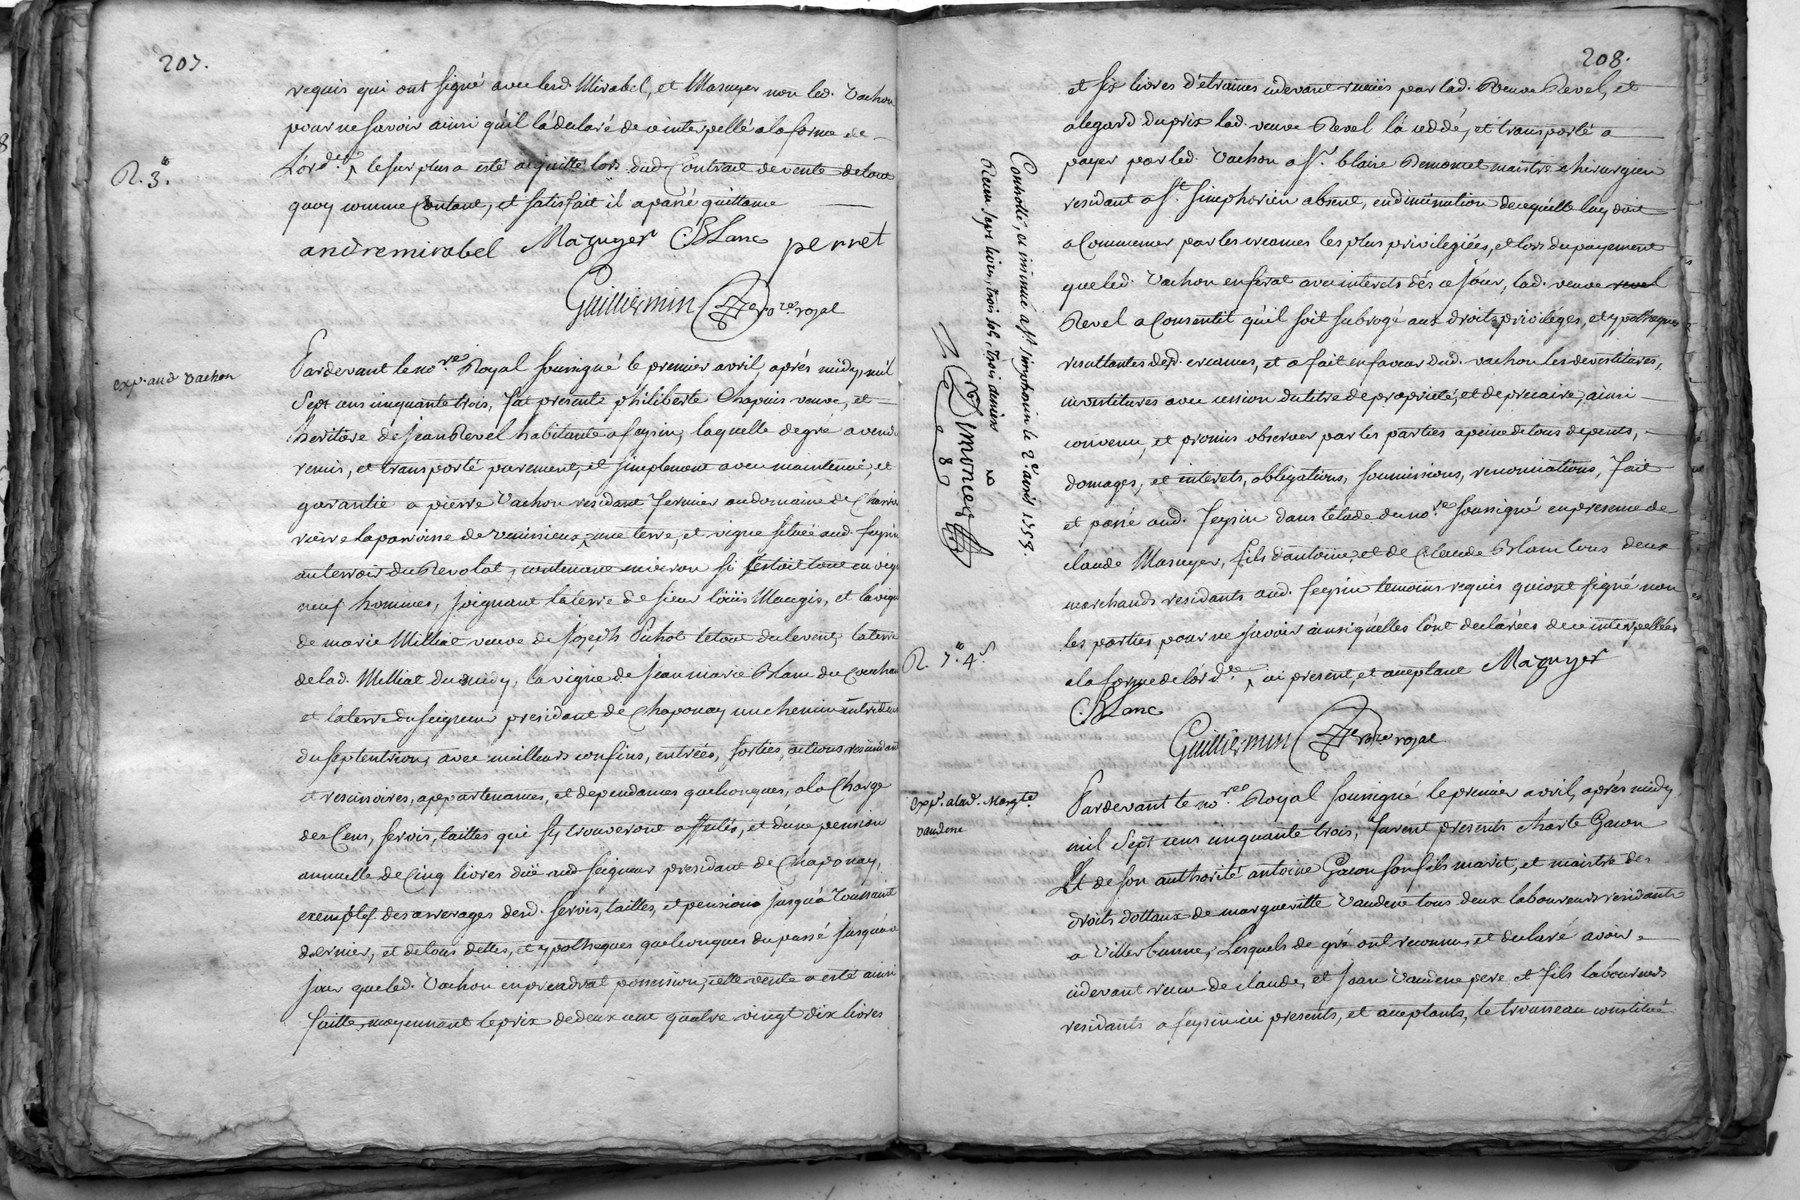 207.
requis qui ont signé avec lesd. Mirabel, et Masuyer non led. Vachon
pour ne savoir ainsi qu'il l'a declaré de ce interpellé a la forme de
L'ord.ce le surplus a esté acquitté lors dud. Contrait de vente de tout
R. 3.tt
quoy comme Contant, et satisfait il a passé quittance
andre mirabel Mazuyer CBLanc perret
Guilliermin no.re royal
exp. aud. Vachon
Pardevant le no.re Royal soussigné le premier avril, aprés midy, mil
Sept cens cinquante trois, fut presente philiberte Chapuis veuve, et
heritiere de Jean Revel habitante a feysin, laquelle de gré a vendu
remis, et transporté purement, et simplement avec maintenüe, et
garantie a pierre Vachon residant fermier au domaine de Charre
viere la paroisse de venissieux, une terre, et vigne située aud. feysin
au terroir du Revolat, contenant environ si s'estoit tout en vigne
neuf hommes, joignant la terre de sieur loüis Maugis, et la vigne
de marie Milliat veuve de Joseph Pichot le tout du levent, la terre
de lad. Milliat du midy, la vigne de Jean marie Blanc du Couchant
et la terre du seigneur president de Chaponay un chemin entredeux
du septentrion, avec meilleurs confins, entrées, sorties, actions rescindants
et rescisoires, appartenances, et dependances quelconques, a la Charge
des Cens, servis, tailles qui s'y trouveront affectés, et d'une pension
annuelle de Cinq livres düe aud. seigneur president de Chaponay,
exemptes des arrerages desd. servis, tailles, et pension jusqu'à Toussaint
dernier, et de tous dettes, et ypotheques quelconques du passé jusqu'à ce
jour que led. Vachon en prendrat possession, cette vente a esté ainsi
faitte, moyennant le prix de deux cent quatre vingt dix livres
208.
et six livres d'étraines cidevant receües par lad. Veuve Revel, et
a l'egard du prix lad. veuve Revel l'a ceddé, et transporté a
payer par led. Vachon a s.r blaise Demoncet maistre chirurgien
residant a S.t Simphorien absent, en diminution de ce qu'elle luy doit
a Commencer par les creances les plus privilegiées, et lors du payement
que led. Vachon en ferat avec interets dés ce jour, lad. veuve revel
Revel a Consentit qu'il soit subrogé aux droits, privileges, et ypotheques
resultantes desd. creances, et a fait en faveur dud. vachon les devestitures,
investitures avec cession du titre de proprieté, et de precaire, ainsi
convenu, et promis observer par les parties a peine de tous depents,
domages, et interets, obligations, soumissions, renonciations, fait
et passé aud. feysin dans l'etude du no.re soussigné en presence de
claude Masuyer, fils d'antoine, et de Claude Blanc tous deux
marchands residants aud. feysin temoins requis qui ont signé non
les parties pour ne savoir ainsi qu'elles l'ont declarées de ce interpellées
a la forme de l'ord.ce, ici present, et acceptant Mazuyer
R. 7.tt 4.s
CBLanc
Guilliermin no.re royal
Controllé, et insinué a S.t Simphorien le 2.e avril 1753.
Receu sept livres, trois sols, trois deniers
Demoncet
exp. a lad. Marg.te
vaudene
Pardevant le no.re Royal soussigné le premier avril, aprés midy
mil Sept cens cinquante trois, furent presents charle Gacon
Et de son authorité antoine Gacon son fils marit, et maistre des
droits dottaux de margueritte Vaudene tous deux laboureurs residants
a Villeurbanne, Lesquels de gré ont reconnus, et declaré avoir
cidevant receu de claude, et Jean Vaudene pere et fils laboureurs
residants a feysin ici presents, et acceptants, le trousseau constitué